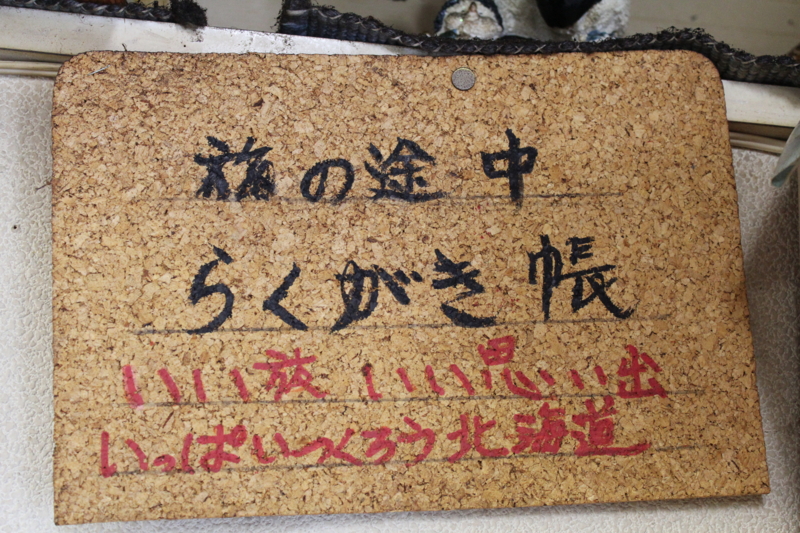 旅の途中
らくがき帳
いい旅 いい思い出
いっぱいつくろう北海道